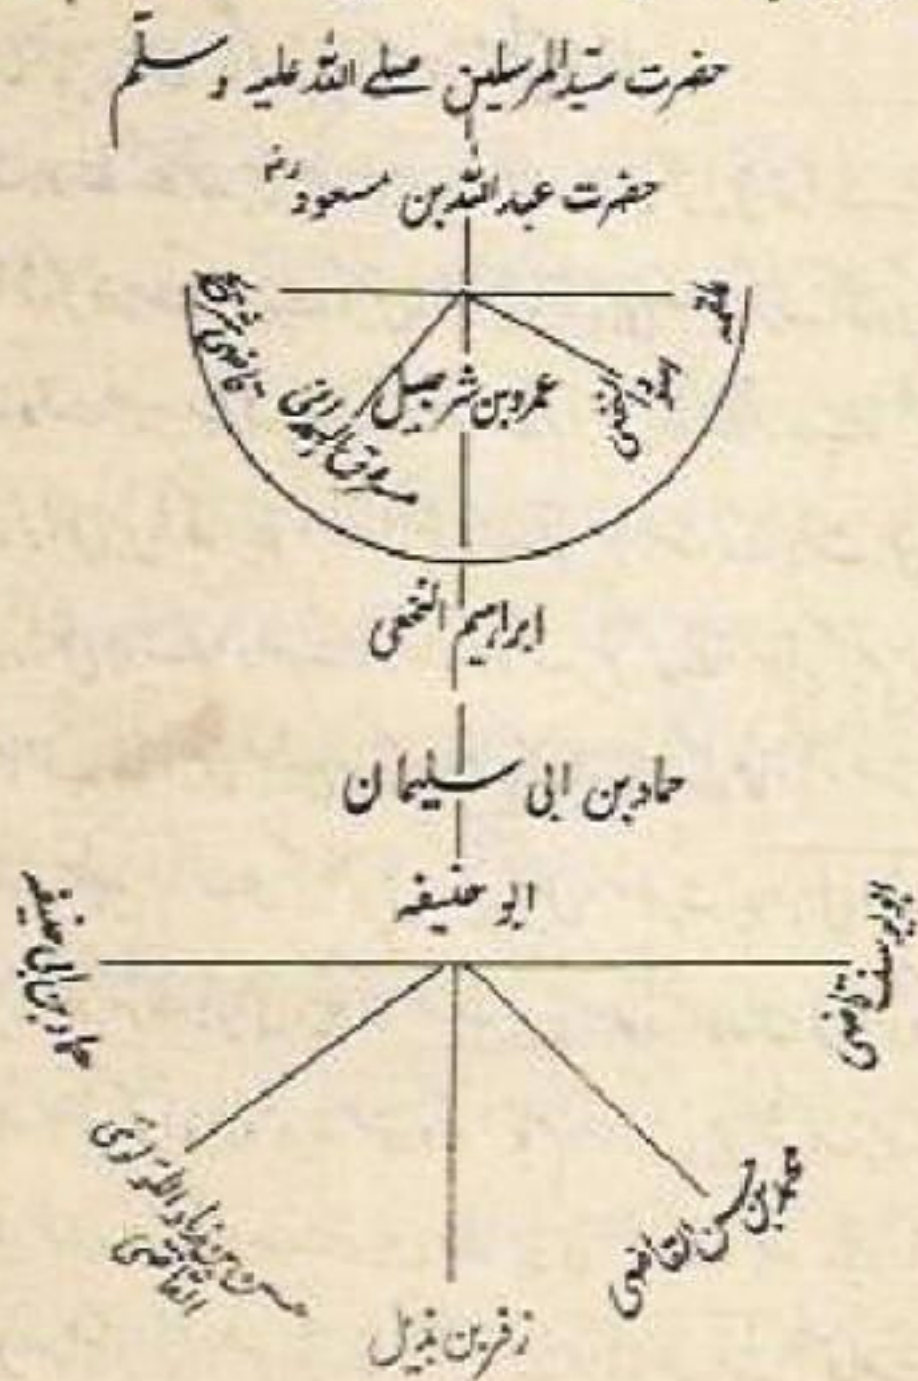 حضرت سیّد المرسلین صلے اللہ علیہ وسلّم
حضرت عبد اللہ بن مسعود رضؓ
علقمہ
اسود النخعی
عمرو بن شرجیل
مسروق الہمدانی
قاضی شریح
ابراہیم النخعی
حماد بن ابی سلیمان
ابو حنیفہ
ابو یوسف قاضی
محمد بن حسن القاضی
زفر بن ہذیل
حسن بن زیاد اللؤلؤی
القاضی
حماد بن ابی حنیفہ